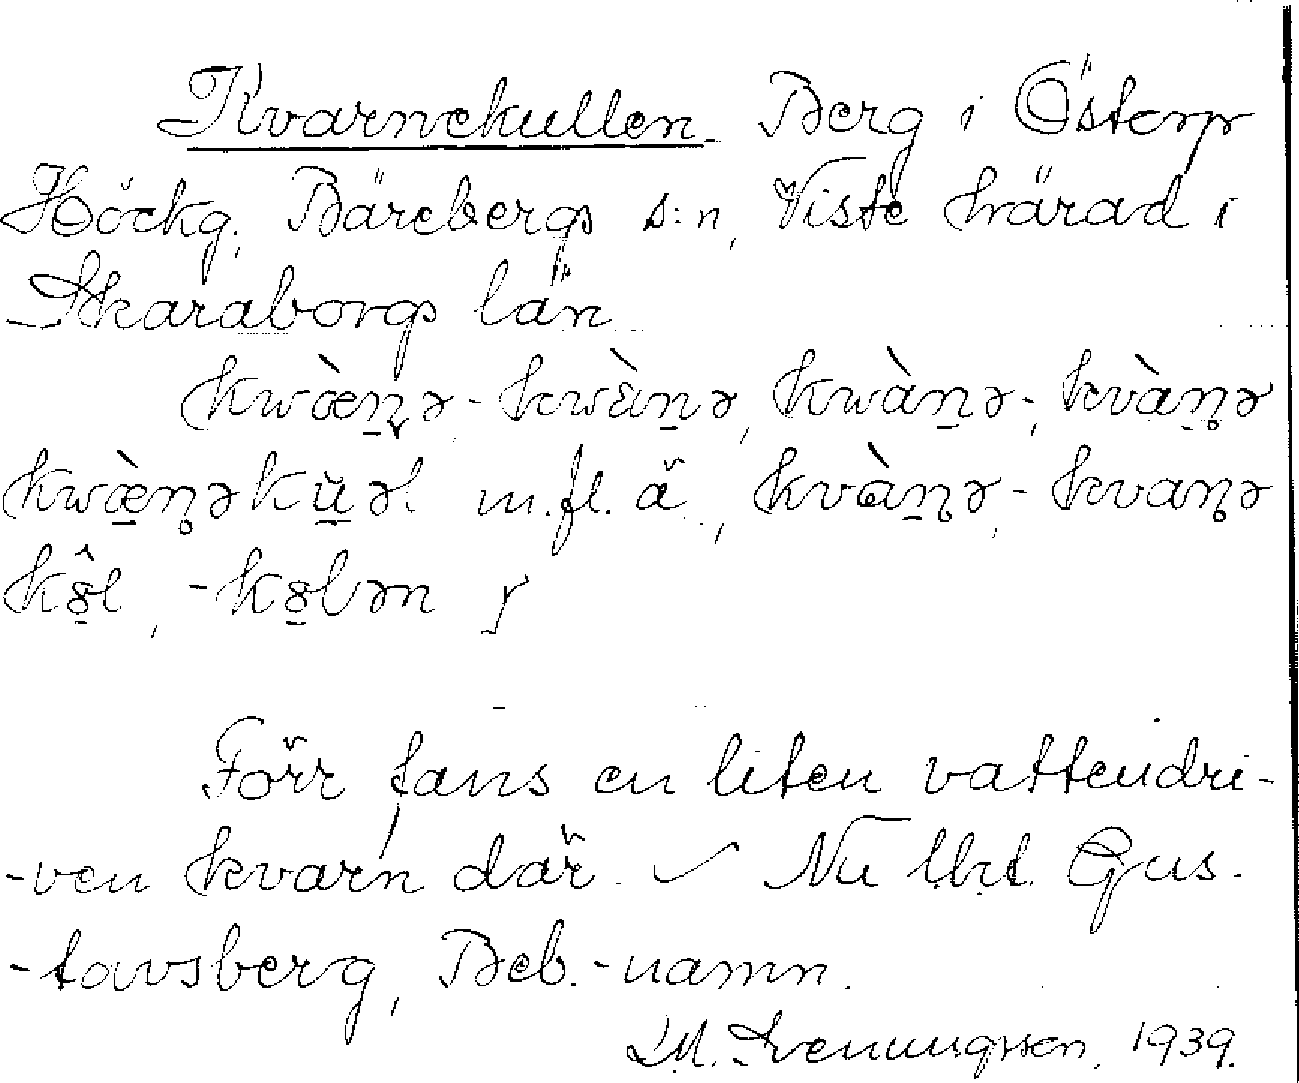 Kvarnekullen. Berg i Österp
Höckg, Bärebergs s:n, Viste härad i
Skaraborgs län
kwæ̀n̥ə-kwàn̠ə, kwàn̠ə-, kvàn̥ə
kwæ̀n̥əkŭ̠əl m.fl. ä, kvàn̥ə-kvan̥ə
kô̠l, -ko̠lən ſ
Förr fans en liten vattendri-
-ven kvarn där. ✓ Nu Gus-
-tavsberg, Beb.-namn.
1939.